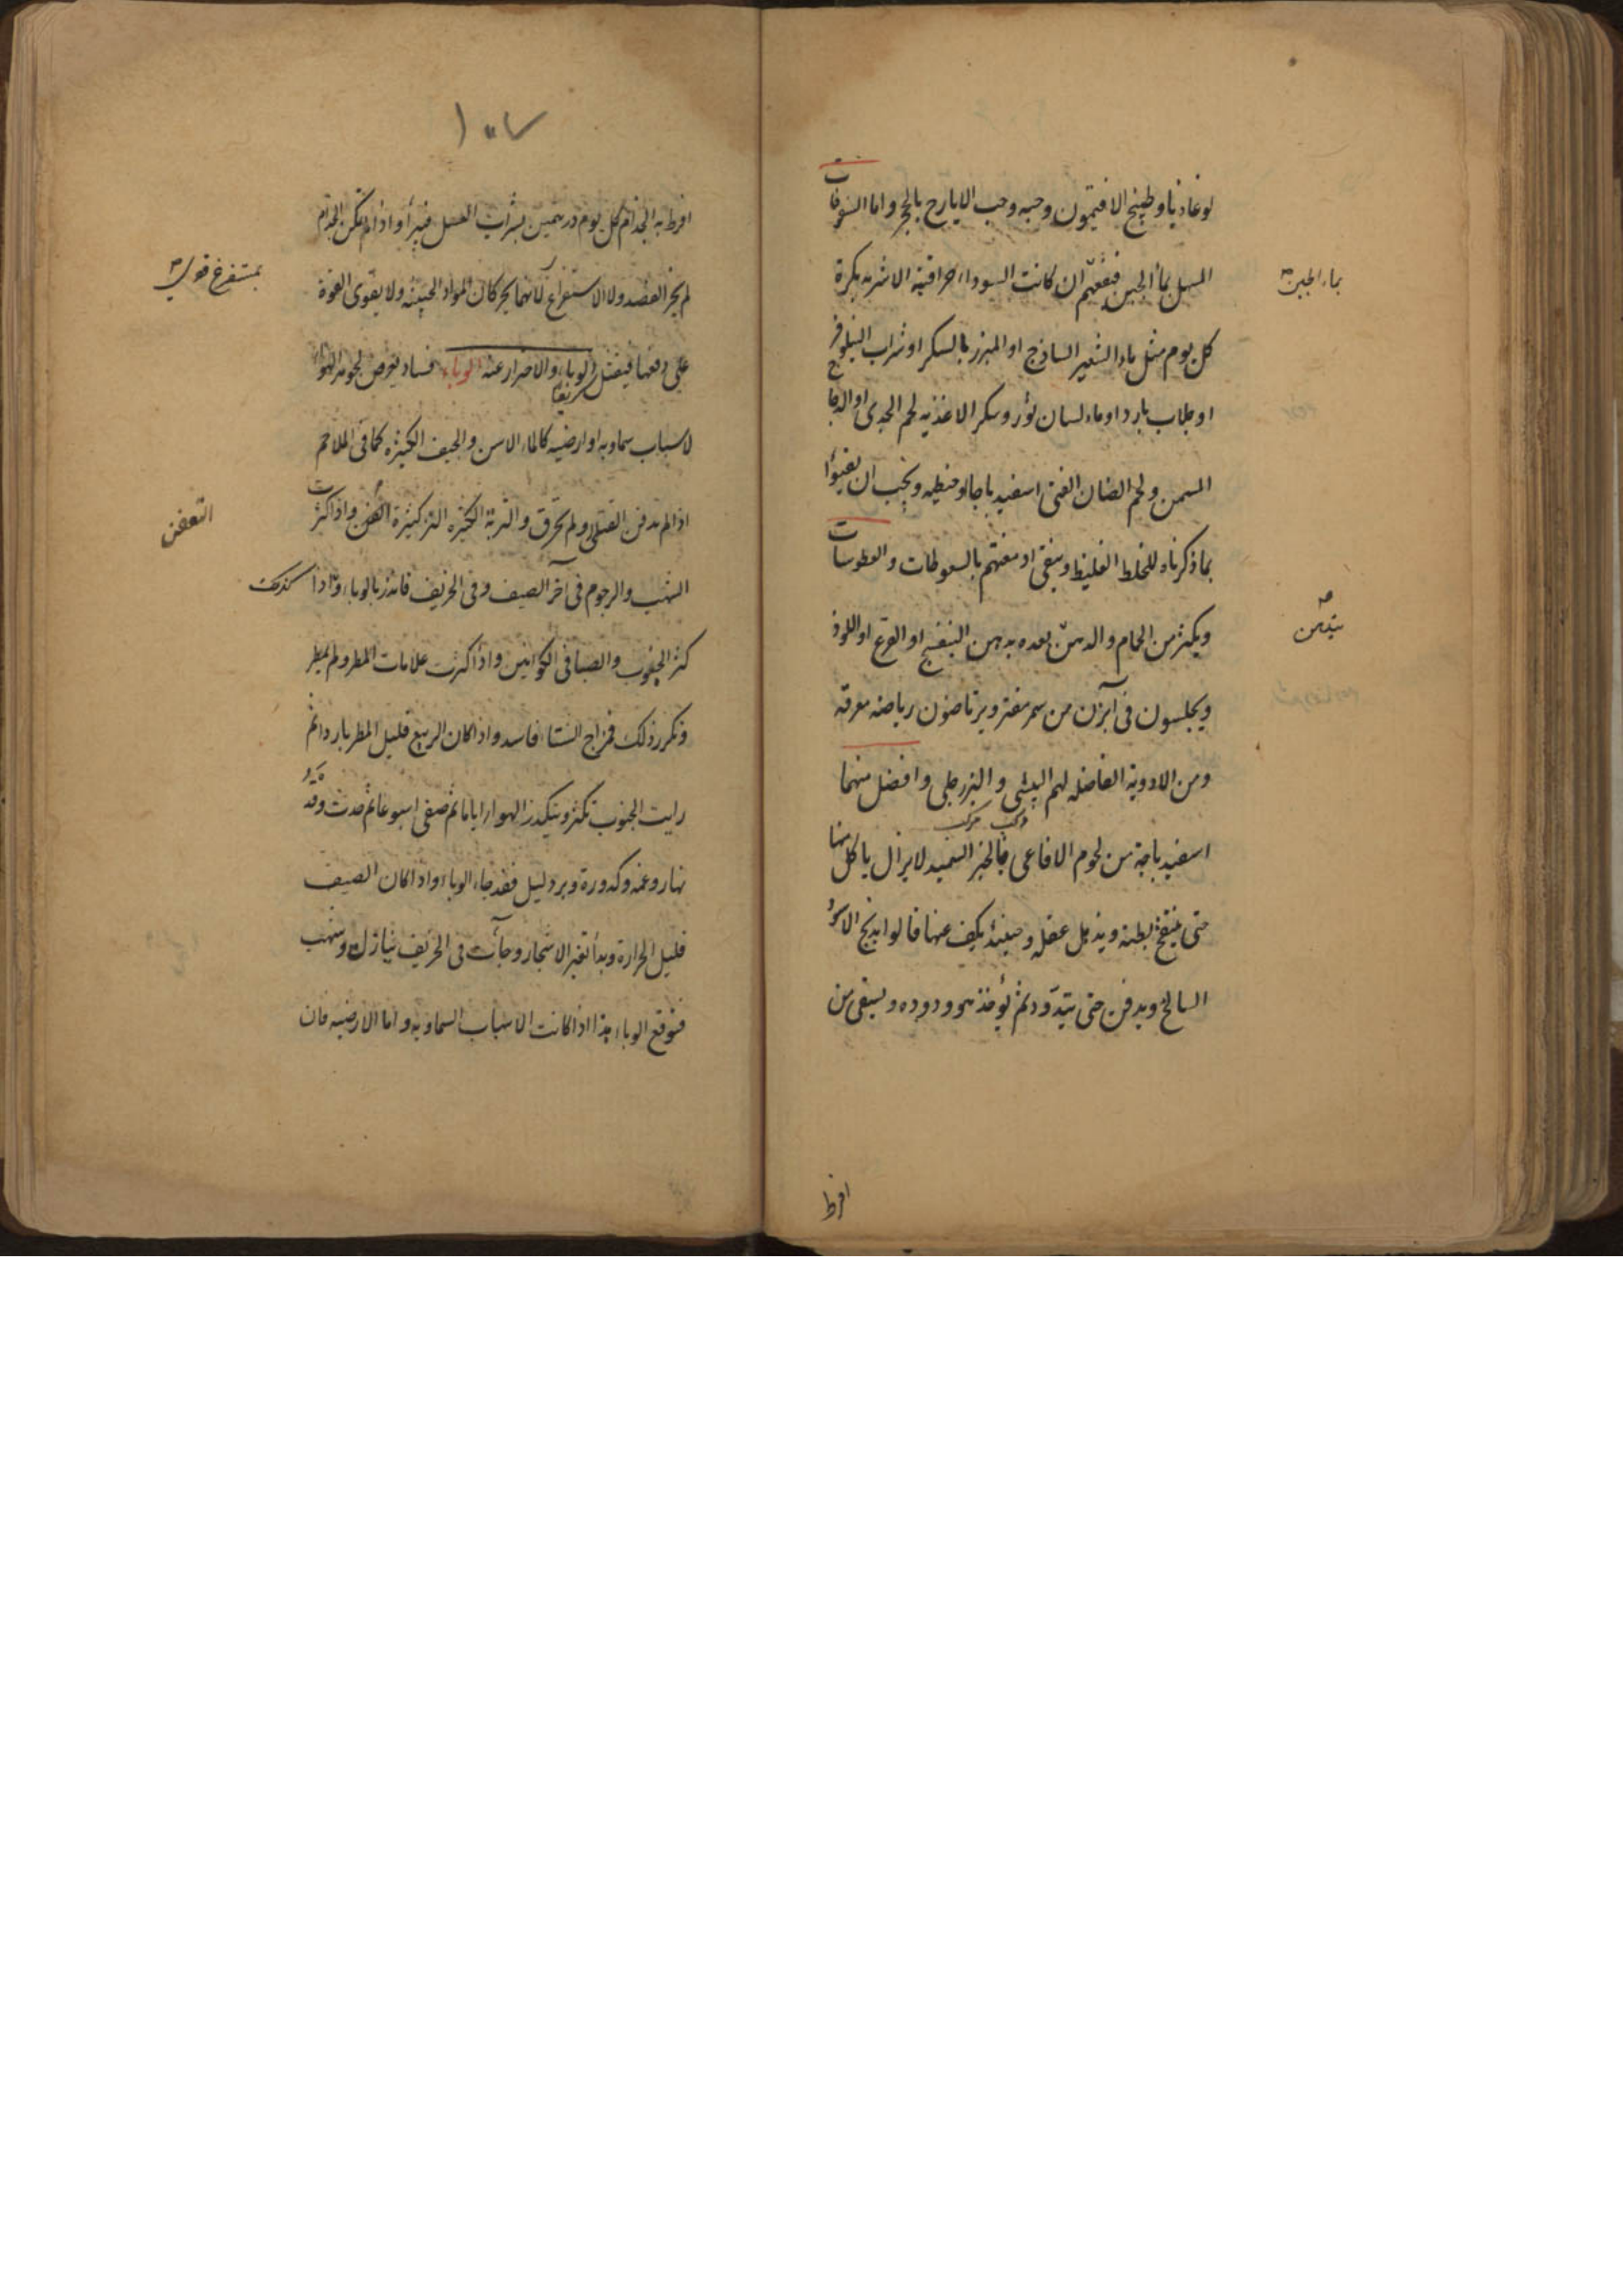 لوغاذيا وطبيخ الافتيمون وحبه وحب الايارج بالحجر واما السفوفات
المسهل بماء الجبن فينفعهم ان كانت السوداء احراقية الاشربه بكرة
بماء الجبن
كل يوم مثل ماء الشعير الساذج او المبزر بالسكر او شراب النيلوفر
او جلاب بارد او ماء لسان ثور وسكر الاغذيه لحم الجدى او الدجاج
المسمن ولحم الضان الفتى اسفيدباجا او حنطيه ويجب ان يعتنوا
بما ذكرناه للخلط الغليظ وينقى ادمغتهم بالسعوطات والعطوسات
ويكثر من الحمام والدهن بعده بدهن البنفسج او القرع او اللوز
يتدهن
ويجلسون فى آبزن من سحر مفتر ويرتاضون رياضه معرقه
ومن الادوية الفاضله لهم البيشى والبزرجلى وافضل منهما
مركب مركب
اسفيدباجة من لحوم الافاعى بالخبز السميد لايزال ياكل منها
حتى ينتفخ بطنه ويذهل عقله وحينئذ يكف عنها قالوا يذبح الاسود
السالخ ويدفن حتى يتدود ثم يؤخذ هو ودوده ويسقى من
افرط
افرط به الجذام كل يوم درهمين بشراب العسل فيبرأ واذا لم يمكن الجذام
لم يجز الفصد ولا الاستفراغ لانهما يحركان المواد الخبيثه ولا يقوى القوة
بمستفرغ قوى
على دفعها فيفضل الوباء والاضرار عنه الوباء فساد يعرض لجوهر الهواء
لاسباب سماويه او ارضيه كالماء الاسن والجيف الكثيره كما فى الملاحم
اذا لم تدفن القتلى ولم تحرق والتربة الكثيره النز كثيرة العفن واذا كثرت
التعفن
الشهب والرجوم فى آخر الصيف وفى الخريف فانذر بالوباء واذا
كذلك
كثر الجنوب والصبا فى الكوانين واذا كثرت علامات المطر ولم يمطر
وتكرر ذلك فمزاج الشتاء فاسد واذا كان الربيع قليل المطر بارد اثم
رايت الجنوب تكثر ويتكدر الهوا اياما ثم صفى اسبوعا ثم حدث ومد
نهار وغمه وكدورة وبرد ليل فقد جاء الوباء واذا كان الصيف
قليل الحرارة وبدأ تغير الاشجار وجاءت فى الخريف نيازك وشهب
فتوقع الوباء هذا اذا كانت الاسباب السماويه واما الارضيه فان